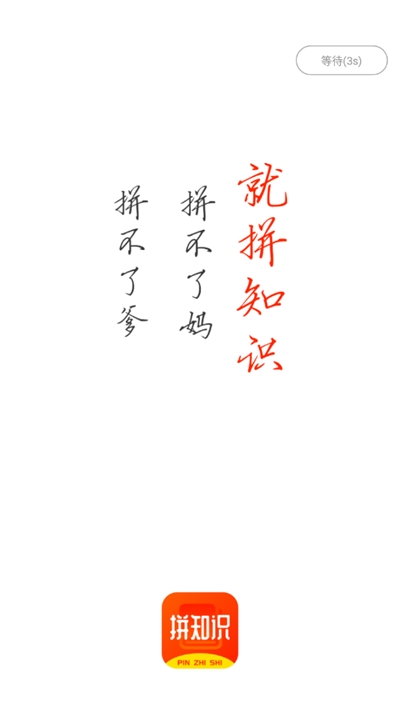 等待(3s)
拼不了爹
拼不了妈
就拼知识
拼知识
PIN ZHI SHI